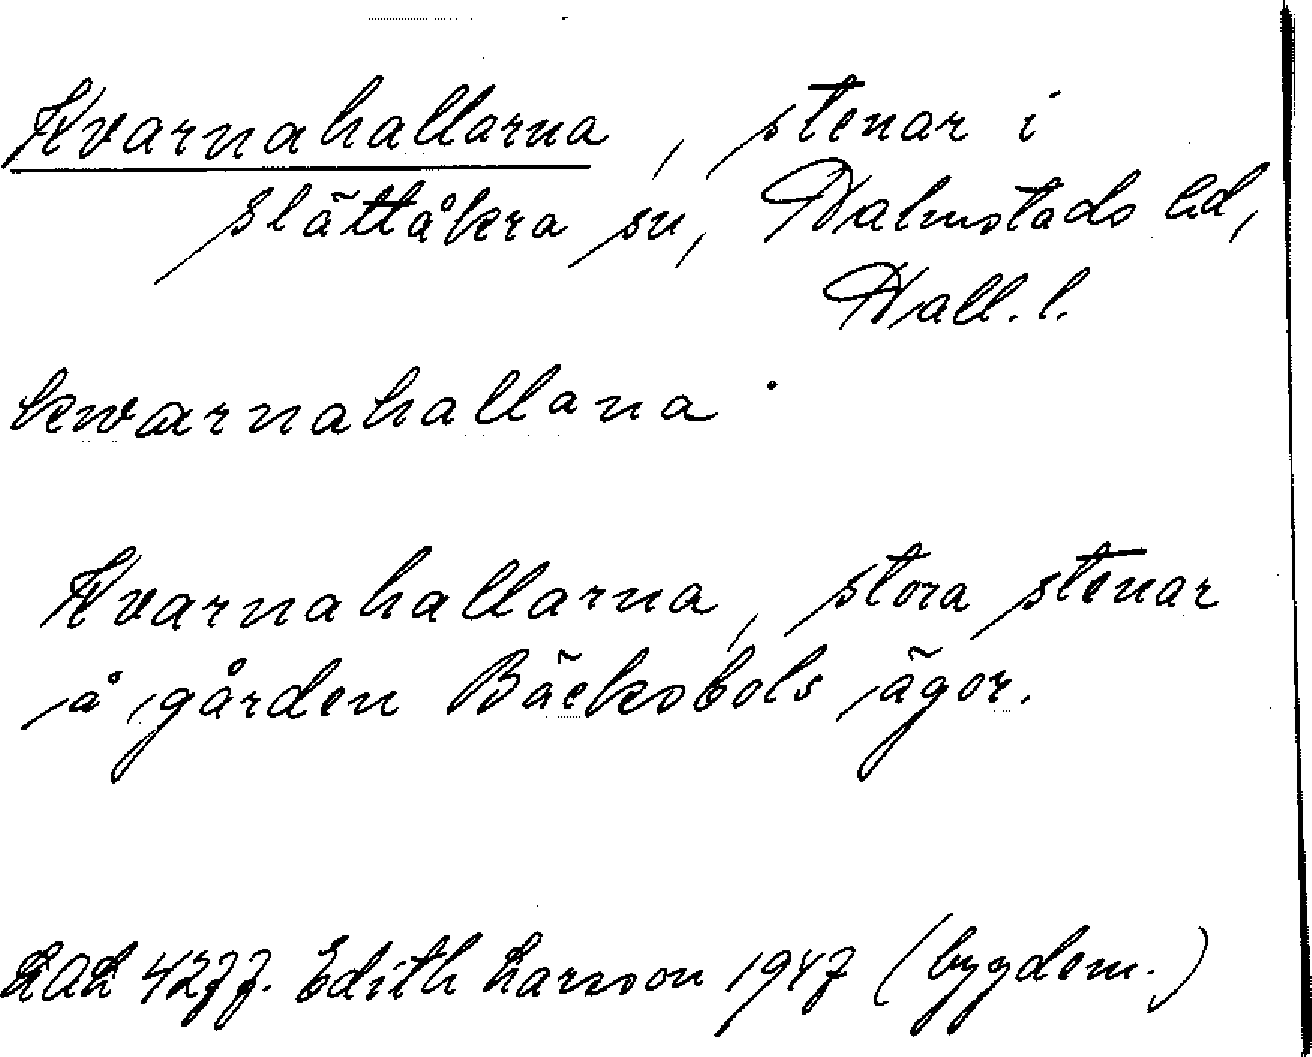 Kvarnahallarna, stenar i
Slättåkra sn, Halmstads hd,
Hall. l.
kwarnahallana
Kvarnahallarna, stora stenar
å gården Bäcksbols ägor.
LAL 4277. Edith Larsson 1947 (bygdem.)